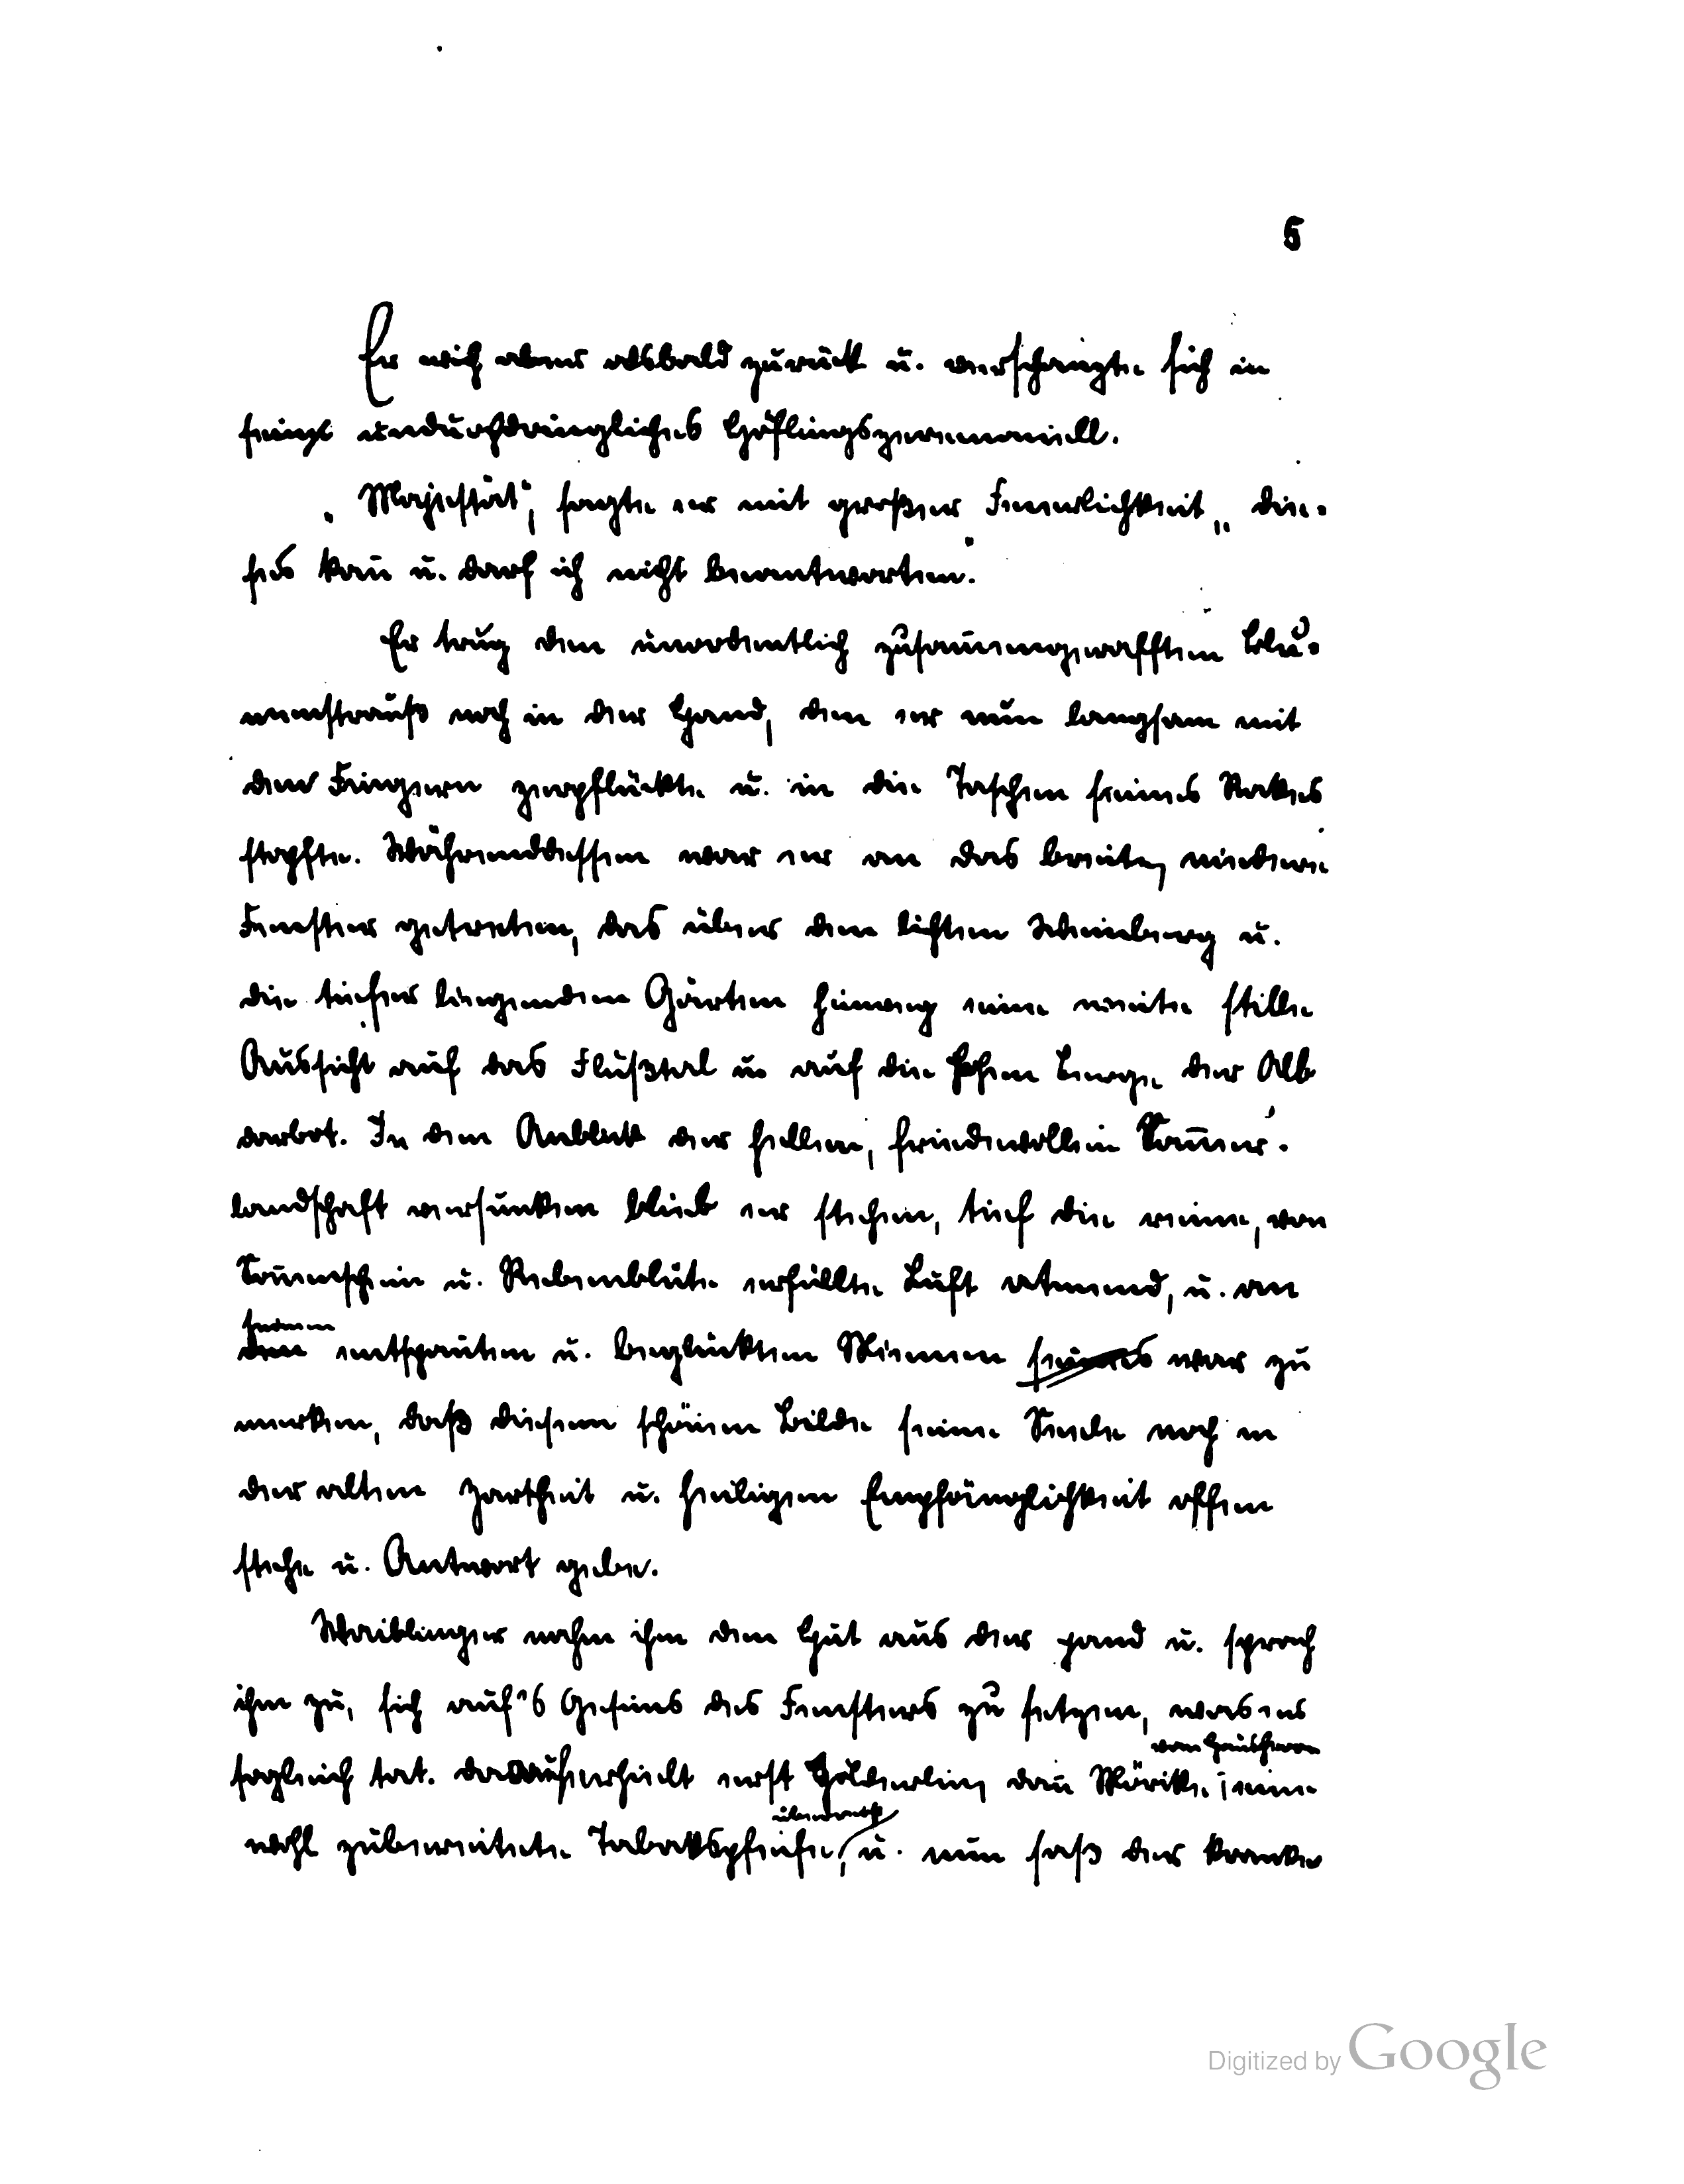 5
Er wich aber alsbald zurück u. verschanzte sich in
sein undurchdringliches Höflingszeremoniell.
„Majestät“, sagte er mit großer Feierlichkeit, „die-
ses kan̄ u. darf ich nicht beantworten.
Er trug den unordentlich zusam̄engerafften Blu-
menstrauß noch in der Hand, den er nun langsam mit
den Fingern zerpflückte u. in die Taschen seines Rockes
stopfte. Währenddessen war er an das breite, niedere
Fenster getreten, das über den lichten Weinberg u.
die tiefer liegenden Gärten hinweg eine weite stille
Aussicht auf das Flußtal u. auf die hohen Berge der Alb
darbot. In den Anblick der hellen, friedevollen Som̄er-
landschaft versunken blieb er stehen, tief die reine, von
Son̄enschein u. Rebenblüte erfüllte Luft atmend, u. an
seinen
den entspan̄ten u. beglückten Mienen seines war zu
merken, daß diesem schönen Bilde seine Seele noch in
der alten Zartheit u. heiligen Empfänglichkeit offen
stehe u. Antwort gebe.
Waiblinger nahm ihm den Hut aus der Hand u. sprach
ihm zu, sich auf's Gesims des Fensters zu setzen, was er
vom Hausherrn
sogleich tat. darauf erhielt erst Hölderlin, dan̄ Mörike eine
überreicht
wohl zubereitete Tabakspfeife, u. nun saß der Kranke
Digitized by Google